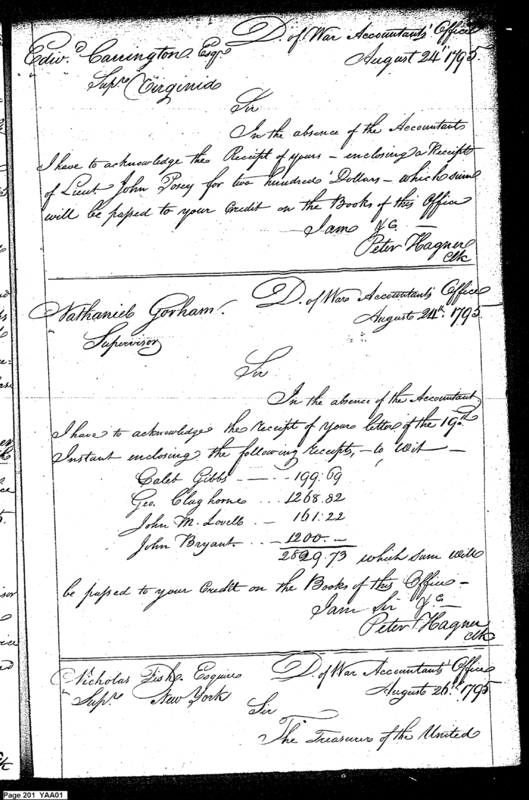 D. of War Accountants Office
Edwd Carrington Esqr August 24th 1795
Supr Virginia
Sir
In the absence of the Accountant
I have to acknowledge the Receipt of yours – enclosing a Receipt
of Lieut John Posey for two hundred Dollars – which sum
will be passed to your Credit on the Books of this Office
I am &c. –
Peter Hagner
Clk
D. of War Accountants Office
Nathaniel Gorham August 24th 1795
Supervisor
Sir
In the absence of the Accountant
I have to acknowledge the receipt of your letter of the 19th
Instant enclosing the following receipts, – to Wit –
Caleb Gibbs – 199.69
Geo. Claghorne .. 1268.82
John M. Lovell .. – 161.22
John Bryant .. – 1200. –
2829.73 which sum will
be passed to your Credit on the Books of this Office –
I am Sir &c. –
Peter Hagner
Clk
Nicholas Fish Esquire D. of War Accountants Office
Supr. New York August 26th 1795
Sir
The Treasurer of the United
Page 201 YAA01